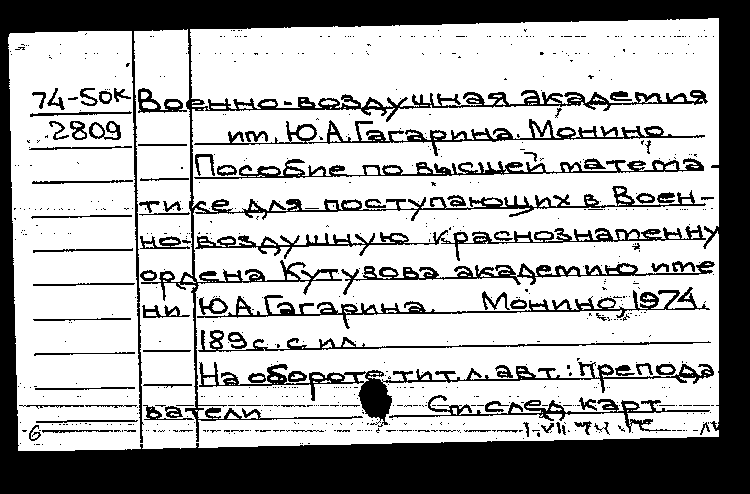 74-50к Военно-воздушная академия
2809 им. Ю.А.Гагарина. Монино.
Пособие по высшей матема-
тике для поступающих в Воен-
но-воздушную краснознаменну
ордена Кутузова академию име
ни Ю.А.Гагарина. Монино, 1974.
189 с. с ил.
На обороте тит.л. авт.: препода
ватели См. след. карт.
6